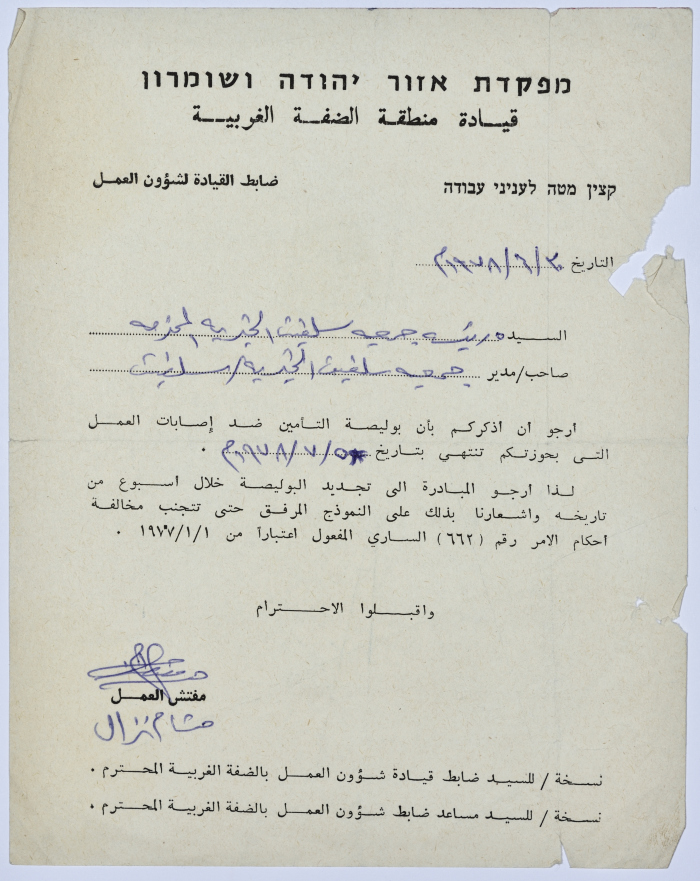 מפקדת אזור יהודה ושומרון
قيادة منطقة الضفة الغربية
קצין מטה לעניני עבודה
ضابط القيادة لشؤون العمل
التاريخ ٣/٦/١٩٧٨م
السيده رئيسه جمعيه سلفيت الخيريه المحترمه
صاحب/مدير جمعيه سلفيت الخيريه/سلفيت
ارجو ان اذكركم بأن بوليصة التأمين ضد إصابات العمل
التى بحوزتكم تنتهي بتاريخ ٥/٧/١٩٧٨م .
لذا ارجو المبادرة الى تجديد البوليصة خلال اسبوع من
تاريخه واشعارنا بذلك على النموذج المرفق حتى تتجنب مخالفة
احكام الامر رقم (٦٦٢) الساري المفعول اعتباراً من ١٩٧٧/١/١ .
واقبلوا الاحترام
مفتش العمل
هشام نزال
نسخة / للسيد ضابط قيادة شؤون العمل بالضفة الغربية المحترم .
نسخة / للسيد مساعد ضابط شؤون العمل بالضفة الغربية المحترم .